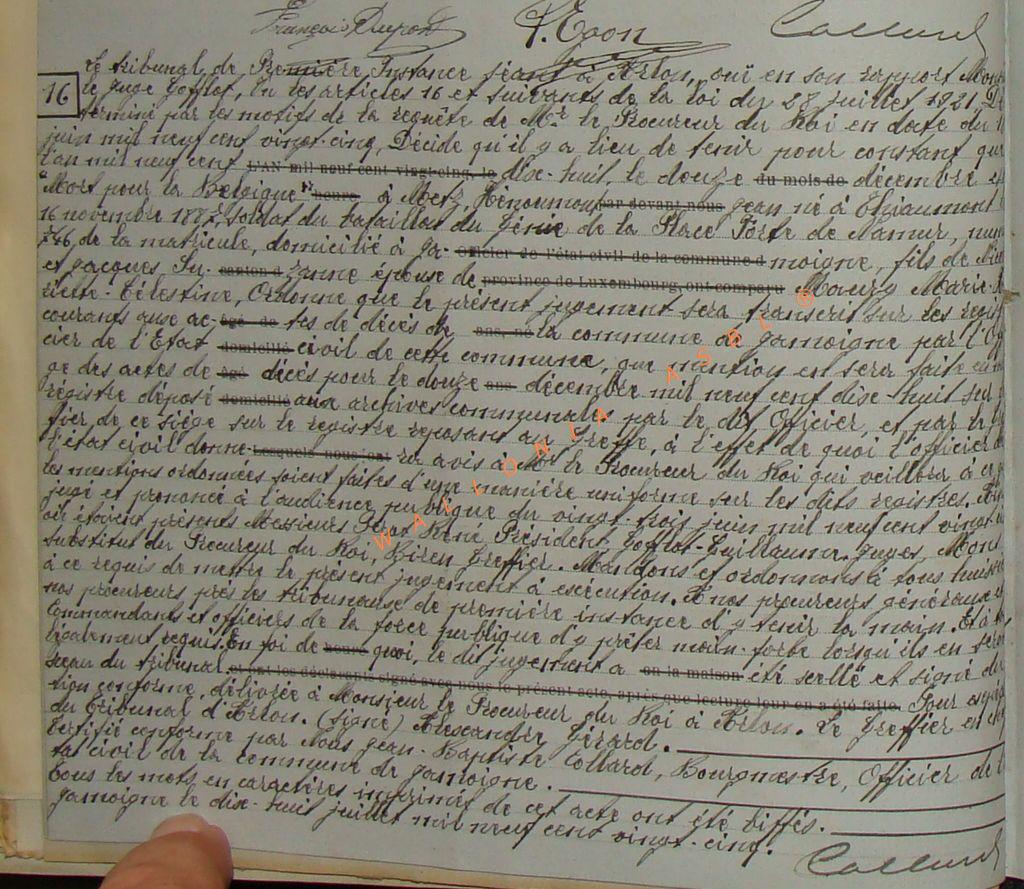 François Dupont J. Goon Collard
16
Le tribunal de Première Instance séant à Arlon, ouï en son rapport Mons
le Juge Gofflot, Vu les articles 16 et suivants de la loi du 28 juillet 1921, Dé
terminé par les motifs de la requête de Mr le Procureur du Roi en date du
juin mil neuf cent vingt-cinq, Décide qu'il y a lieu de tenir pour constant que
l'an mil neuf cent L'AN mil neuf cent vingt-cinq, le dixe-huit, le douze du mois de décembre e
"Mort pour la Belgique" heure à Metz, Jénoumon par devant nous Jean né à Thiaumont
16 novembre 1887, soldat du bataillon du Génie de la Place Forte de Namur, num
746, de la matricule, domicilié à Ja- Officier de l'état civil de la commune d moigne, fils de Ni
et Jacques Su- canton d zanne épouse de province de Luxembourg, ont comparu Moury Marie-
riette-Célestine, Ordonne que le présent jugement sera transcrit sur les regis
courants aux ac- âgé de tes de décès de ans, né la commune de Jamoigne par l'O
cier de l'Etat domicilié civil de cette commune, que mention en sera faite en
ge des actes de âgé décès pour le douze ans décembre mil neuf cent dixe-huit sur
régistre déposé domicilié aux archives communales par le dit Officier, et par le
fier de ce siège sur le registre reposant au Greffe, à l'effet de quoi l'officier d
l'état civil donne- Lesquels nous ont ra avis à Mr le Procureur du Roi qui veillera à ce
les mentions ordonnées soient faites d'une manière uniforme sur les dits registres.
jugé et prononcé à l'audience publique du vingt-trois juin mil neuf cent vingt-
où étaient présents Messieurs René Président, Gofflot-Guillaume, Juges, Mons
substitut du Procureur du Roi, Biren Greffier. Mandons et ordonnons à tous huiss
à ce requis de mettre le présent jugement à exécution. A nos procureurs généraux e
nos procureurs près les tribunaux de première instance d'y tenir la main. Et à
Commandants et officiers de la force publique d'y prêter main-forte lorsqu'ils en sero
légalement requis. En foi de heure quoi, le dit jugement a en la maison été scellé et signé du
sceau du tribunal et ont les déclarants signé avec nous le présent acte, après que lecture leur en a été faite. Pour expé
tion conforme, délivrée à Monsieur le Procureur du Roi à Arlon. Le Greffier en
du Tribunal d'Arlon. (signé) Alexandre Gérard.
Certifié conforme par Nous Jean-Baptiste Collard, Bourgmestre, Officier de l
tat civil de la commune de Jamoigne.
Tous les mots en caractères imprimés de cet acte ont été biffés.
Jamoigne le dixe-huit juillet mil neuf cent vingt-cinq.
Collard
WALLONIA ASBL ®